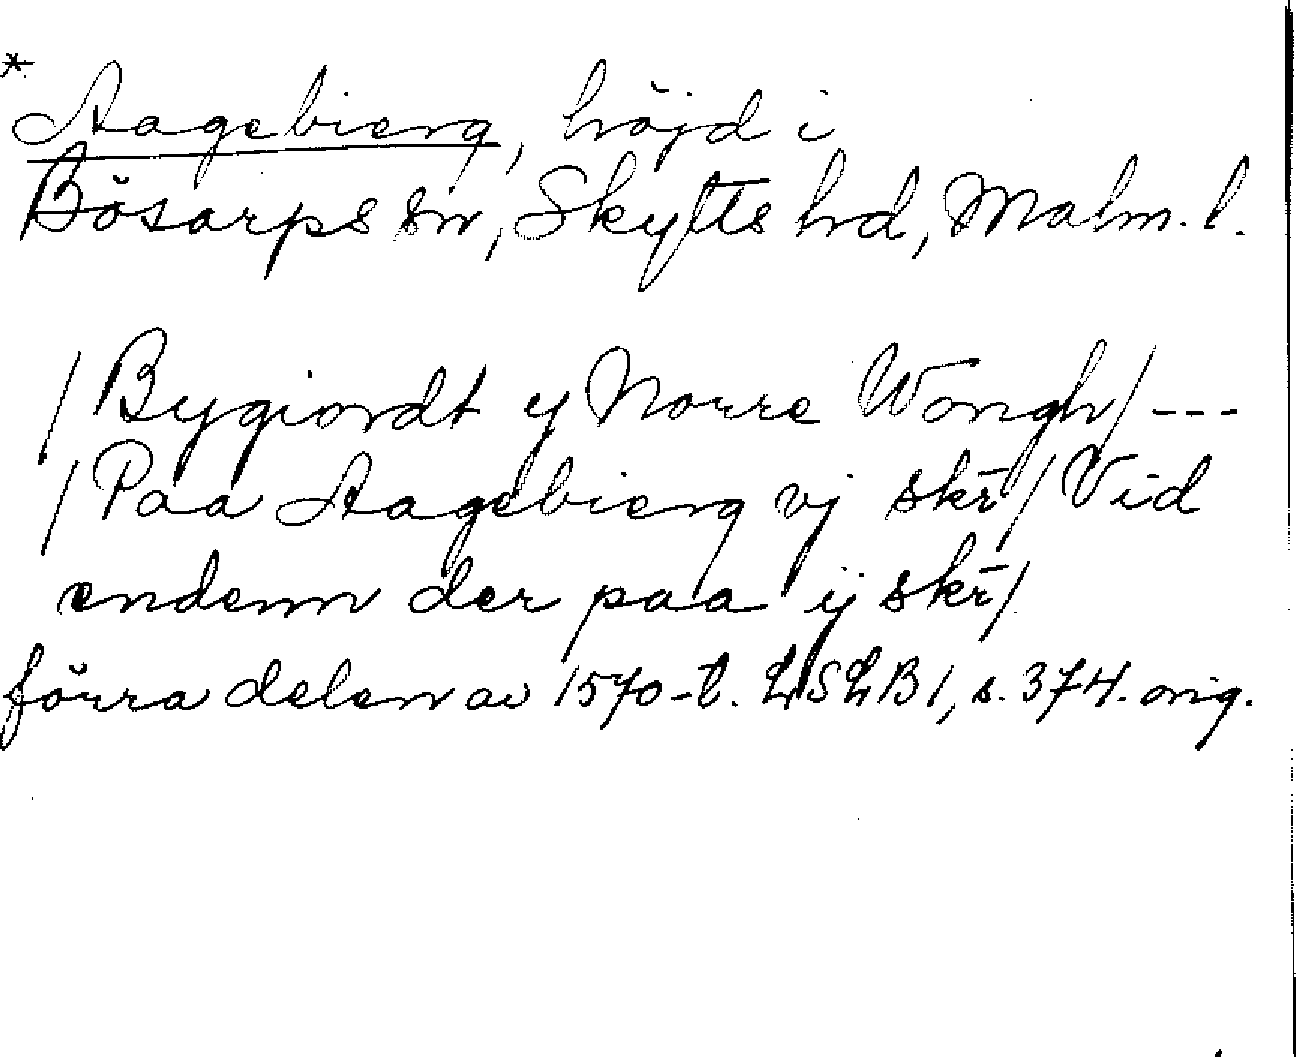 * Aagebierg, höjd i
Bösarps sn, Skytts hd, Malm. l.
/ Bygiordt y Norre Wongh / ---
/ Paa Aagebierg vj skr̄ / Vid
endenn der paa ij skr̄ /
förra delen av 1570-t. LSLB 1, s. 374. orig.